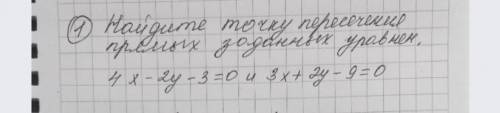 ① Найдите точку пересечение
прямых заданных уравнен.
4x-2y-3=0 и 3x+2y-9=0